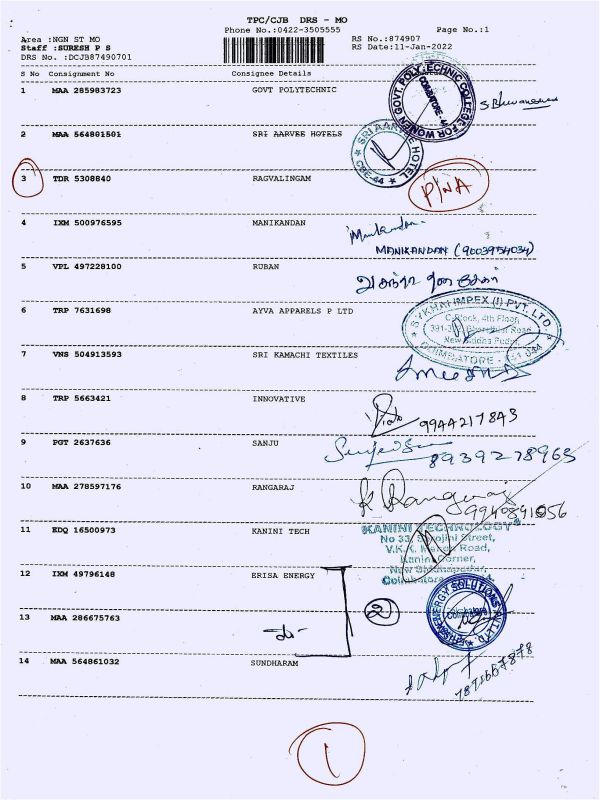 TPC/CJB DRS - MO
Phone No.:0422-3505555
Page No.:1
Area :NGN ST MO
RS No.:874907
Staff :SURESH P S
RS Date:11-Jan-2022
DRS No. :DCJB87490701
S No Consignment No Consignee Details
1 MAA 285983723 GOVT POLYTECHNIC
GOVT. POLYTECHNIC COLLEGE FOR WOMEN
COIMBATORE - 44
2 MAA 564801501 SRI AARVEE HOTELS
SRI AARVEE HOTEL
CBE-44
3 TDR 5308840 RAGVALINGAM
P/NA
4 IXM 500976595 MANIKANDAN
Manikandan
MANIKANDAN (9003954034)
5 VPL 497228100 RUBAN
6 TRP 7631698 AYVA APPARELS P LTD
SYKHAI IMPEX (I) PVT. LTD.
C Block, 4th Floor,
Road,
New Siddha Pudur,
COIMBATORE - 641 044
7 VNS 504913593 SRI KAMACHI TEXTILES
8 TRP 5663421 INNOVATIVE
9944217843
9 PGT 2637636 SANJU
8939278963
10 MAA 278597176 RANGARAJ
K Rangaraj
9940891056
11 EDQ 16500973 KANINI TECH
KANINI TECHNOLOGY
No 33, Sarojini Street,
Road,
Kanini Corner,
Coimbatore
12 IXM 49796148 ERISA ENERGY
2
ENERGY SOLUTIONS PVT LTD.
Coimbatore
13 MAA 286675763
14 MAA 564861032 SUNDHARAM
7871667878
1